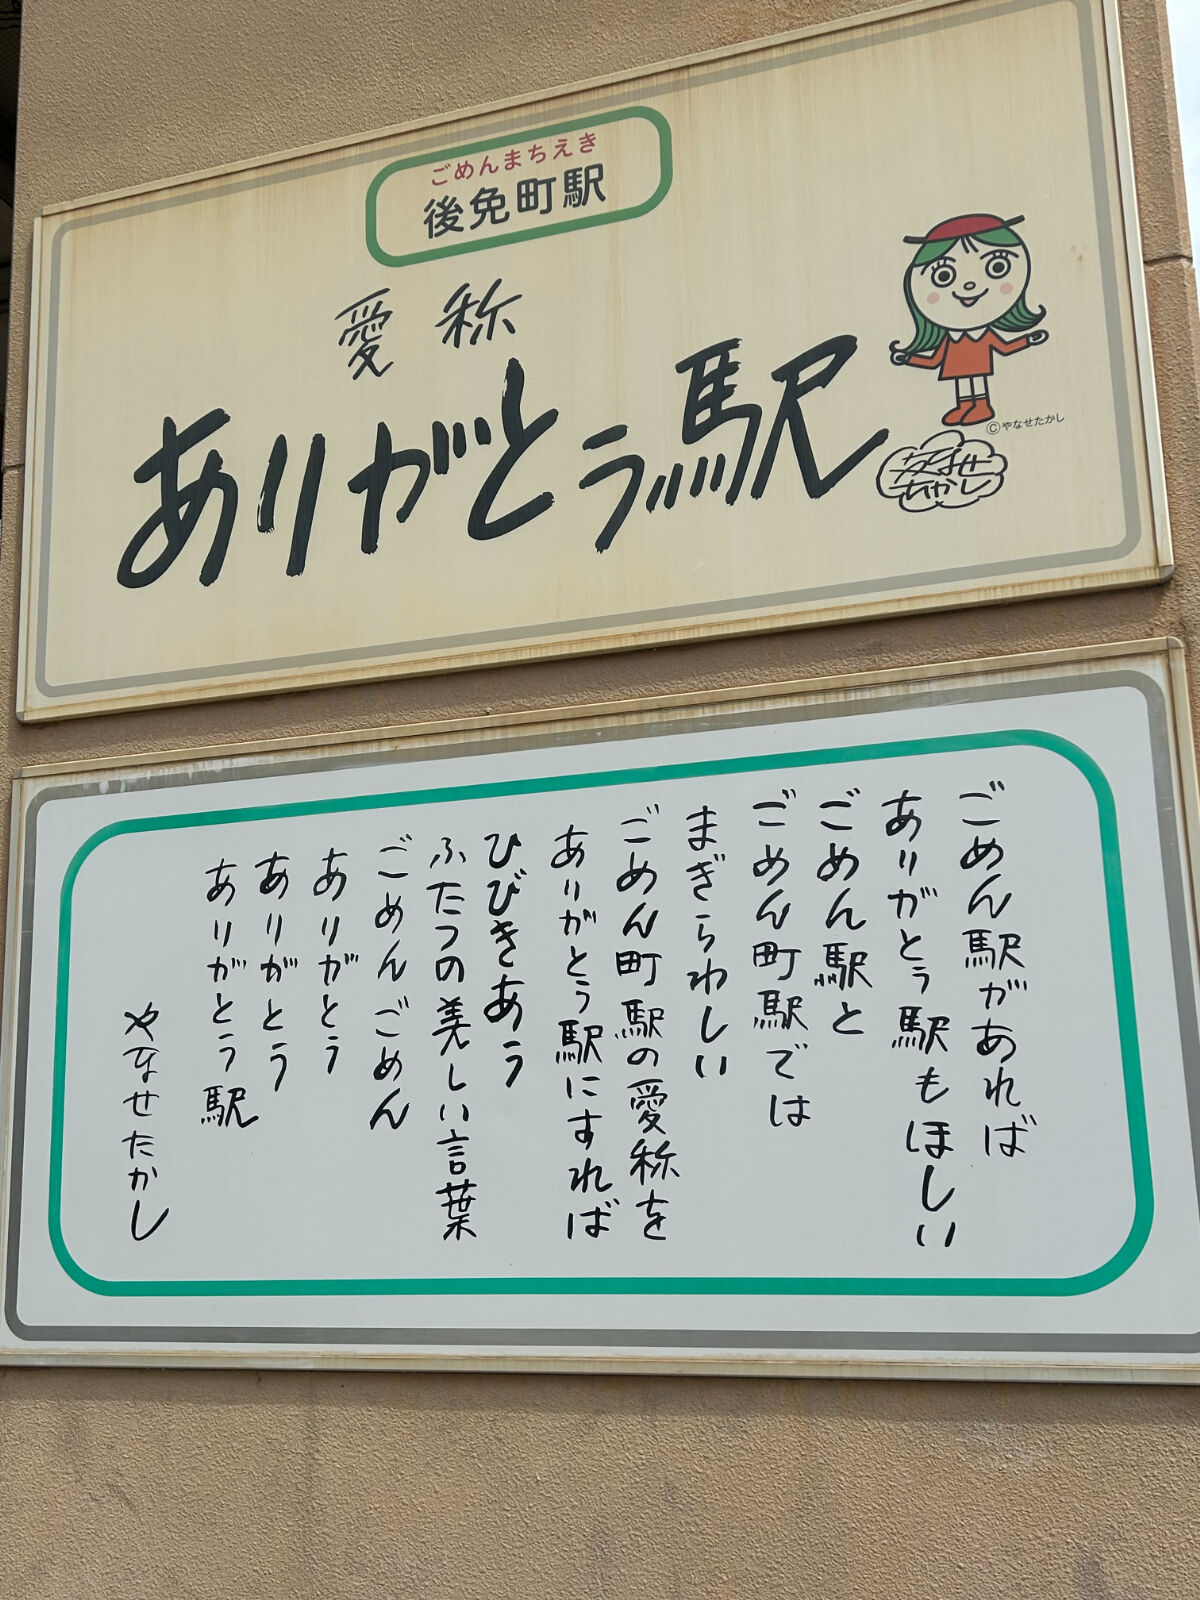 ごめんまちえき
後免町駅
愛称
ありがとう駅
©やなせたかし
やなせ
たかし
ごめん駅があれば
ありがとう駅もほしい
ごめん駅と
ごめん町駅では
まぎらわしい
ごめん町駅の愛称を
ありがとう駅にすれば
ひびきあう
ふたつの美しい言葉
ごめんごめん
ありがとう
ありがとう
ありがとう駅
やなせたかし